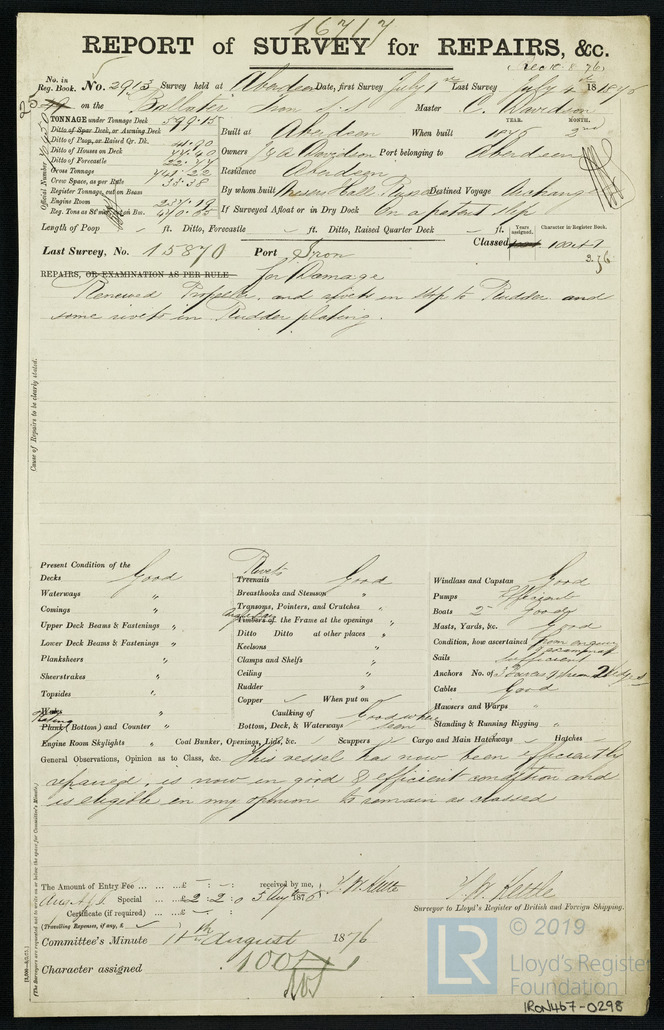 16717
REPORT of SURVEY for REPAIRS, &c.
No. in Reg. Book. No. 2913 Survey held at Aberdeen Date, first Survey July 1st Last Survey July 4th 1876
on the Ballater Iron S.S. Master C. Davidson
TONNAGE under Tonnage Deck 599.15
Ditto of Spar Deck, or Awning Deck
Ditto of Poop, or Raised Qr. Dk.
Ditto of Houses on Deck
Ditto of Forecastle 22.77
Gross Tonnage 741.22
Crew Space, as per Rule 33.38
Register Tonnage, cut on Beam
Engine Room 237.19
Reg. Tons as St'mr, cut on Bm. 470.65
Official Number
YEAR. MONTH.
Built at Aberdeen When built 1875 2nd
Owners J & A Davidson Port belonging to Aberdeen
Residence Aberdeen
By whom built Messrs Hall Russell Destined Voyage Archangel
If Surveyed Afloat or in Dry Dock On a patent slip
Length of Poop – ft. Ditto, Forecastle – ft. Ditto, Raised Quarter Deck – ft.
Years assigned. Character in Register Book.
Last Survey, No. 15870 Port Iron Classed 100A1
2.76
REPAIRS, OR EXAMINATION AS PER RULE for Damage
Renewed Propeller, and rivets in stop to Rudder and
some rivets in Rudder plating.
Cause of Repairs to be clearly stated.
Present Condition of the
Decks Good
Waterways "
Comings "
Upper Deck Beams & Fastenings "
Lower Deck Beams & Fastenings "
Planksheers "
Sheerstrakes "
Topsides "
Wales "
Plating
Plank (Bottom) and Counter "
Rivets
Treenails Good
Breasthooks and Stemson "
Transoms, Pointers, and Crutches "
Timbers of the Frame at the openings "
Ditto Ditto at other places "
Keelsons "
Clamps and Shelfs "
Ceiling "
Rudder "
Copper ✓ When put on
Caulking of
Bottom, Deck, & Waterways Good where seen
Windlass and Capstan Good
Pumps Efficient
Boats 2 Good
Masts, Yards, &c. Good
Condition, how ascertained from
Sails Sufficient
Anchors No. of 3 Bowers 1 Stream 2 Kedges
Cables Good
Hawsers and Warps "
Standing & Running Rigging "
Engine Room Skylights " Coal Bunker, Openings, Lids, &c. Scuppers Cargo and Main Hatchways Hatches
General Observations, Opinion as to Class, &c. This vessel has now been efficiently
repaired, is now in good & efficient condition and
is eligible in my opinion to remain as classed
(The Surveyors are requested not to write on or below the space for Committee's Minute.)
The Amount of Entry Fee ... ... ...£ – : – : received by me,
Special ... ...£ 2 : 2 : 0 5 Aug 1876
Certificate (if required) ... ...
(Travelling Expenses, if any, £ )
J. W. Kettle
Surveyor to Lloyd's Register of British and Foreign Shipping.
Committee's Minute 11th August 1876
Character assigned 100A1
LR © 2019
Lloyd's Register
Foundation
IRON467-0298